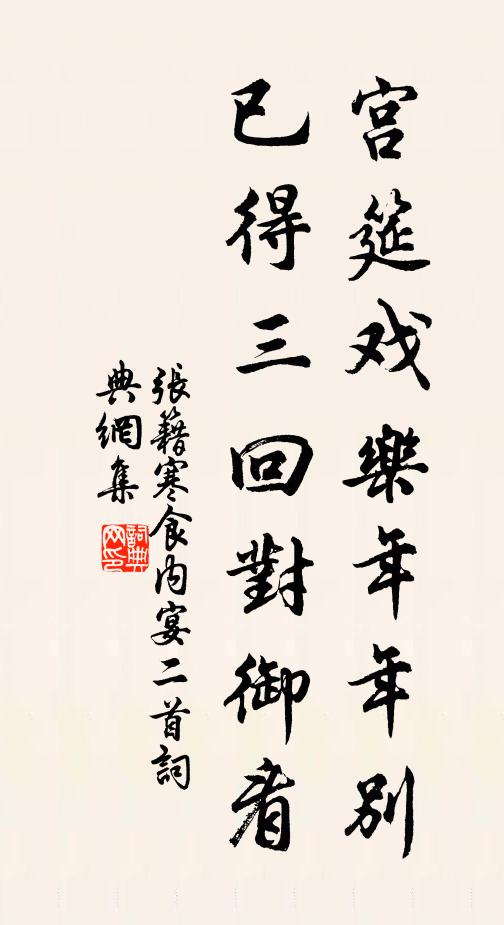 宫筵戏樂年年别
已得三回對御看
張籍寒食内宴二首詞
典網集
詞典
网印